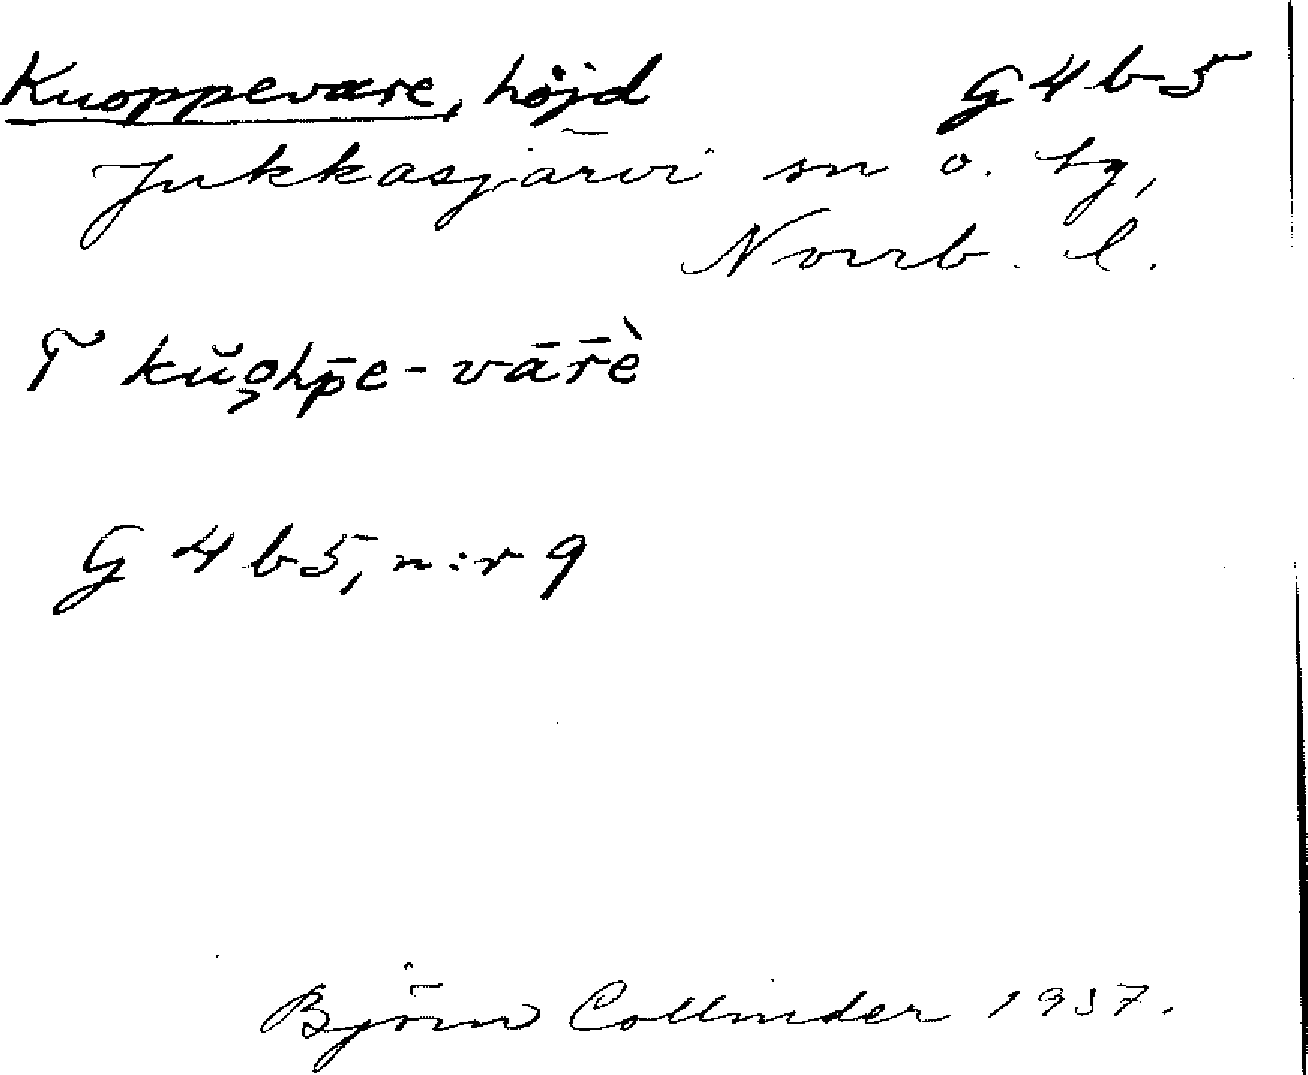 Kuoppevare, höjd G4b5
Jukkasjärvi sn o. tg,
Norrb. l.
T kŭo̧hp̄e-vār̄è
G 4 b 5, n:r 9
Björn Collinder 1937.